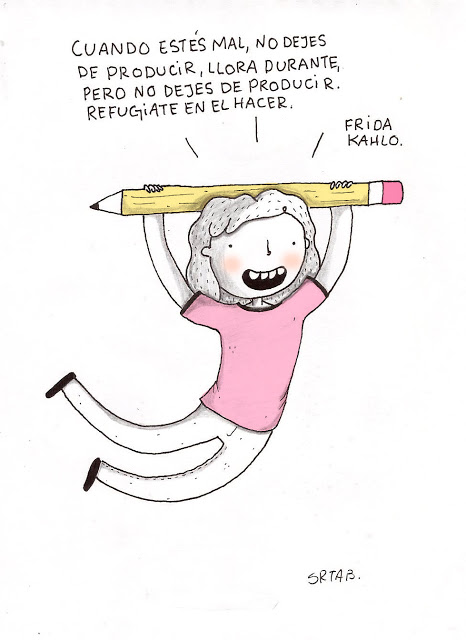 CUANDO ESTÉS MAL, NO DEJES
DE PRODUCIR, LLORA DURANTE,
PERO NO DEJES DE PRODUCIR.
REFUGIATE EN EL HACER.
FRIDA
KAHLO.
SRTAB.